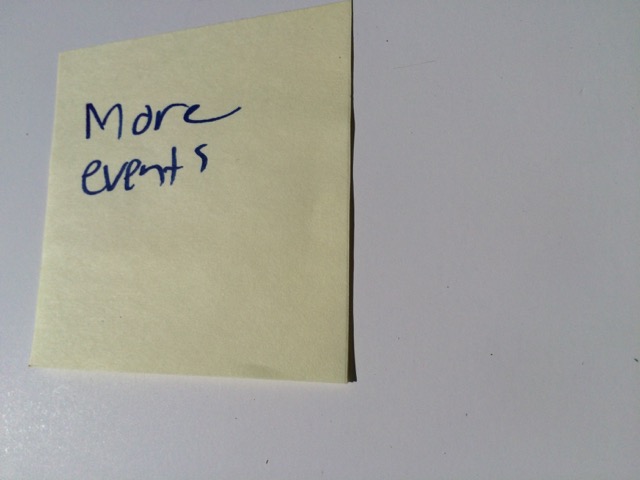 More
events